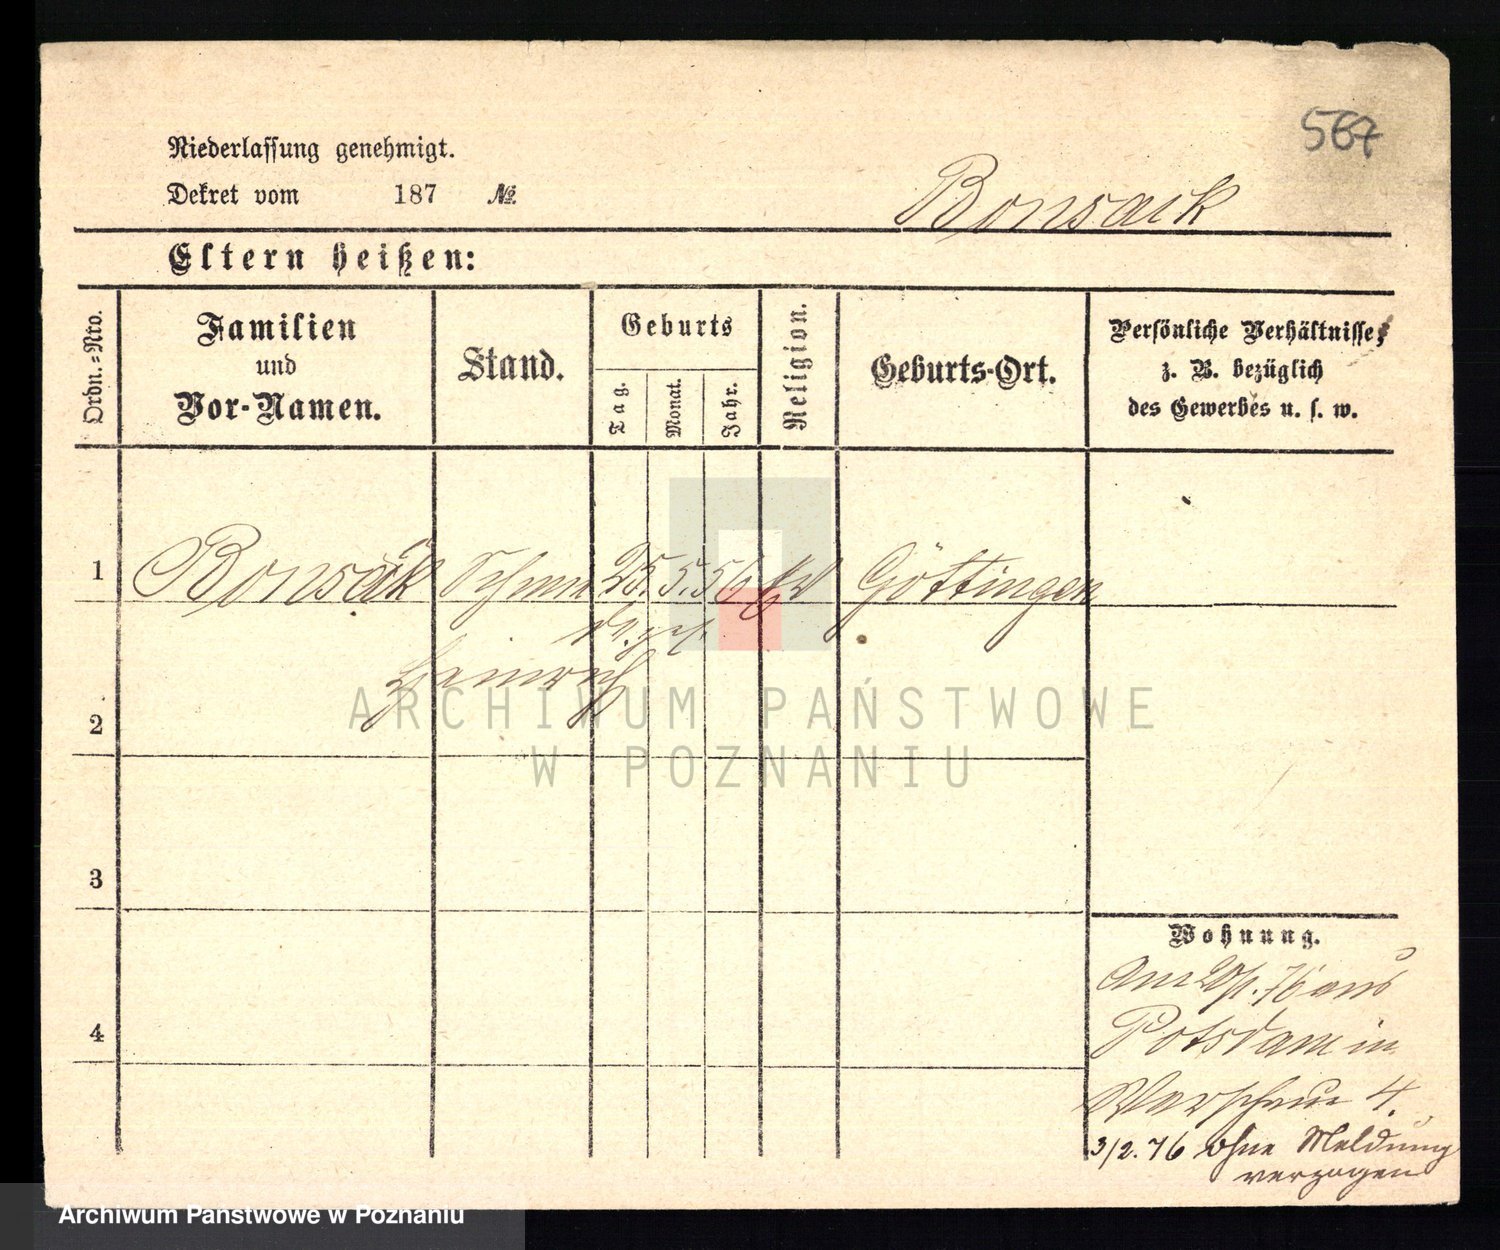 567
Niederlassung genehmigt.
Dekret vom 187 №
Bonsack
Eltern heißen:
Ordn.=Nro.
Familien
und
Vor-Namen.
Stand.
Geburts
Tag.
Monat.
Jahr.
Religion.
Geburts-Ort.
Persönliche Verhältnisse,
z. B. bezüglich
des Gewerbes u. s. w.
1 Bonsack 25. 5. 56 Göttingen
Heinrich
2
3
4
Wohnung.
Am 20/1. 76 aus
Potsdam in
4.
3/2. 76 ohne Meldung
verzogen
ARCHIWUM PAŃSTWOWE
W POZNANIU
Archiwum Państwowe w Poznaniu